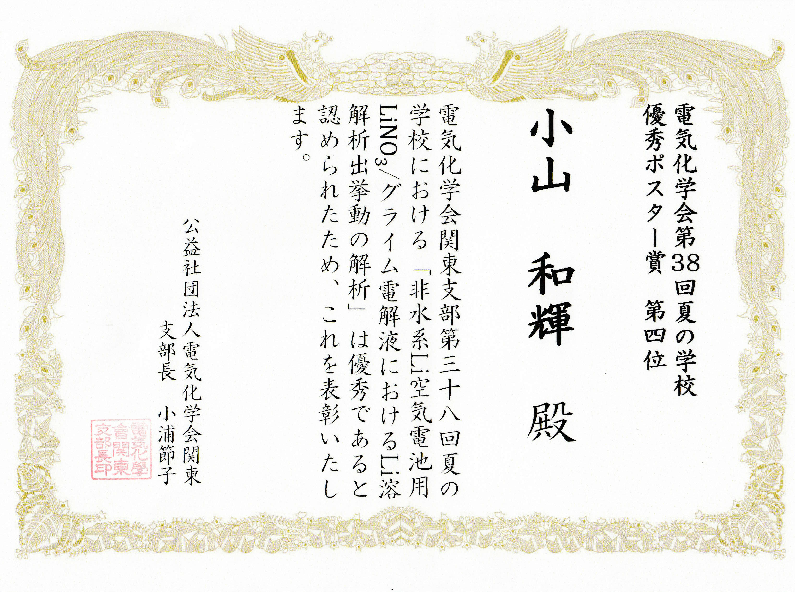 電気化学会第38回夏の学校
優秀ポスター賞 第四位
小山 和輝 殿
電気化学会関東支部第三十八回夏の
学校における「非水系Li空気電池用
LiNO3/グライム電解液におけるLi溶
解析出挙動の解析」は優秀であると
認められたため、これを表彰いたし
ます。
公益社団法人電気化学会関東
支部長 小浦節子
電気化學
会関東
支部長印